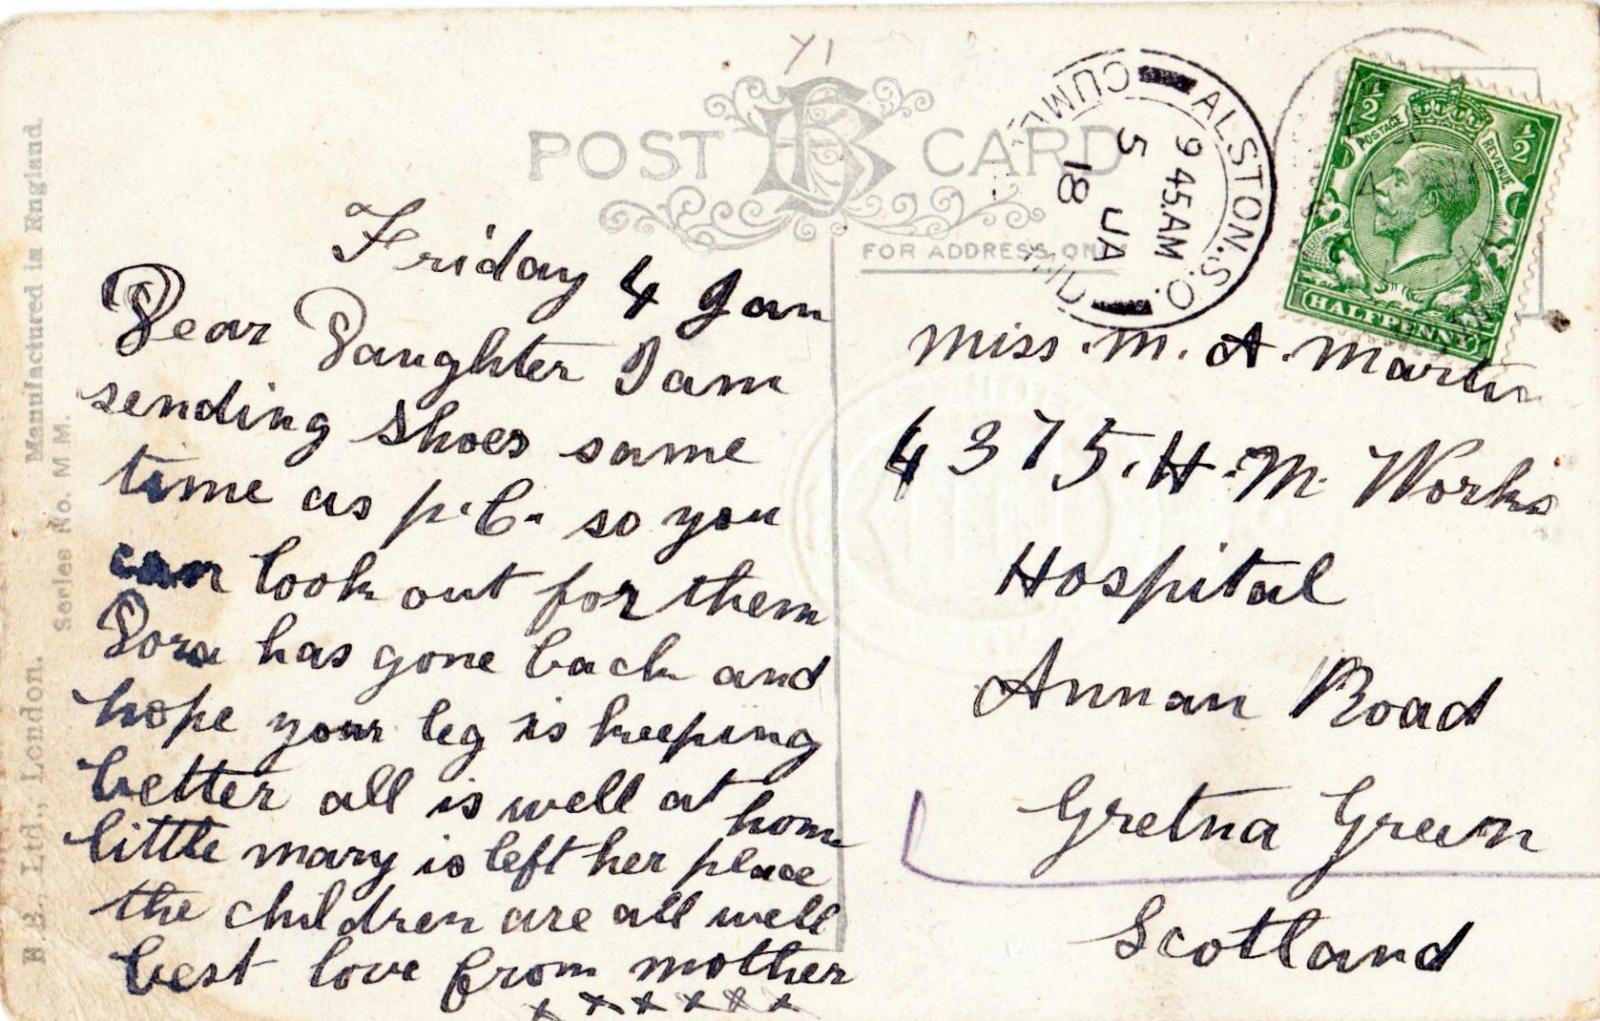 Y1
POST CARD
FOR ADDRESS ONLY
ALSTON.S.O.
CUMB
9 45.AM
5 JA
18
½ ½
POSTAGE REVENUE
HALFPENNY
Friday 4 Jan
Dear Daughter I am
sending shoes same
time as p.C. so you
can look out for them
Dora has gone back and
hope your leg is keeping
better all is well at home
little mary is left her place
the children are all well
best love from mother
x x x x x x
Miss. M. A. Martin
4375. H. M. Works
Hospital
Annan Road
Gretna Green
Scotland
B.B., Ltd., London. Manufactured in England.
Series No. M M.